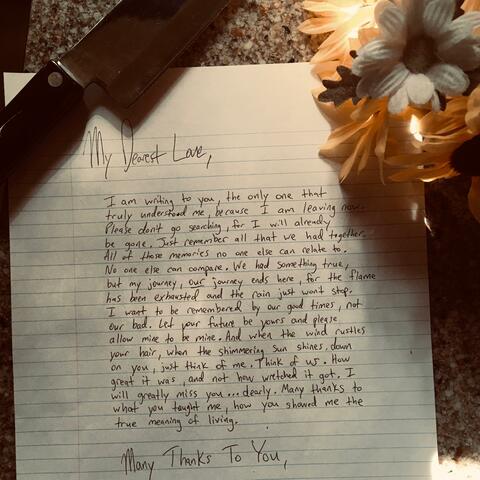 My Dearest Love,
I am writing to you, the only one that
truly understood me, because I am leaving now.
Please don't go searching, for I will already
be gone. Just remember all that we had together.
All of those memories no one else can relate to.
No one else can compare. We had something true,
but my journey, our journey ends here, for the flame
has been exhausted and the rain just won't stop.
I want to be remembered by our good times, not
our bad. Let your future be yours and please
allow mine to be mine. And when the wind rustles
your hair, when the shimmering sun shines down
on you, just think of me. Think of us. How
great it was, and not how wretched it got. I
will greatly miss you...dearly. Many thanks to
what you taught me, how you showed me the
true meaning of living.
Many Thanks To You,